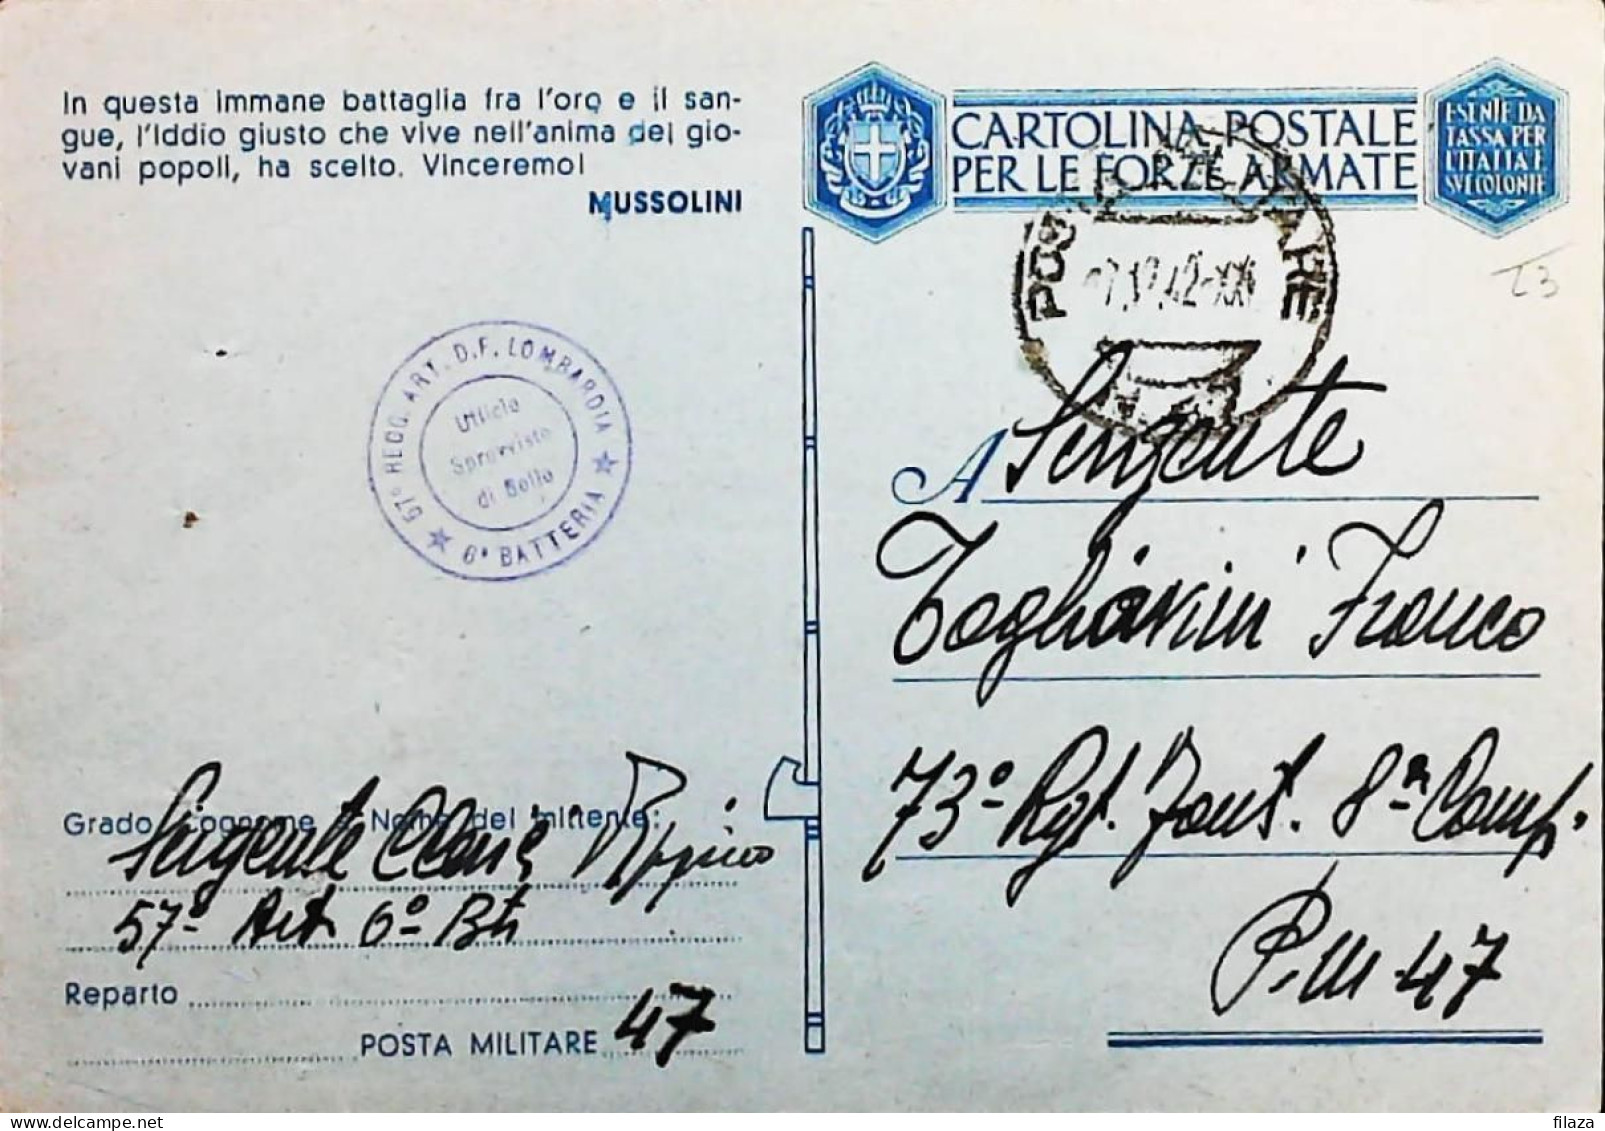 In questa immane battaglia fra l'oro e il san-
gue, l'Iddio giusto che vive nell'anima dei gio-
vani popoli, ha scelto. Vinceremo!
MUSSOLINI
CARTOLINA POSTALE
PER LE FORZE ARMATE
ESENTE DA
TASSA PER
L'ITALIA E
SUE COLONIE
POSTA MILITARE
.42-XXI
23
57º REGG. ART. D.F. LOMBARDIA
6ª BATTERIA
Ufficio
Sprovvisto
di Bollo
A Sergente
Togliavini Franco
73º Rgt. Fant. 8ª Comp.
P.M. 47
Grado, Cognome e Nome del mittente:
Sergente
57º Art 6º Btr
Reparto
POSTA MILITARE 47
filaza